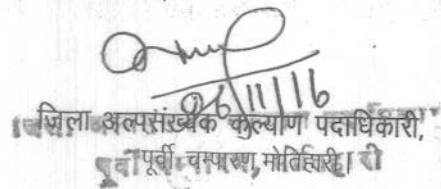 26/11/16
जिला अल्पसंख्यक कल्याण पदाधिकारी,
पूर्वी चम्पारण, मोतिहारी।